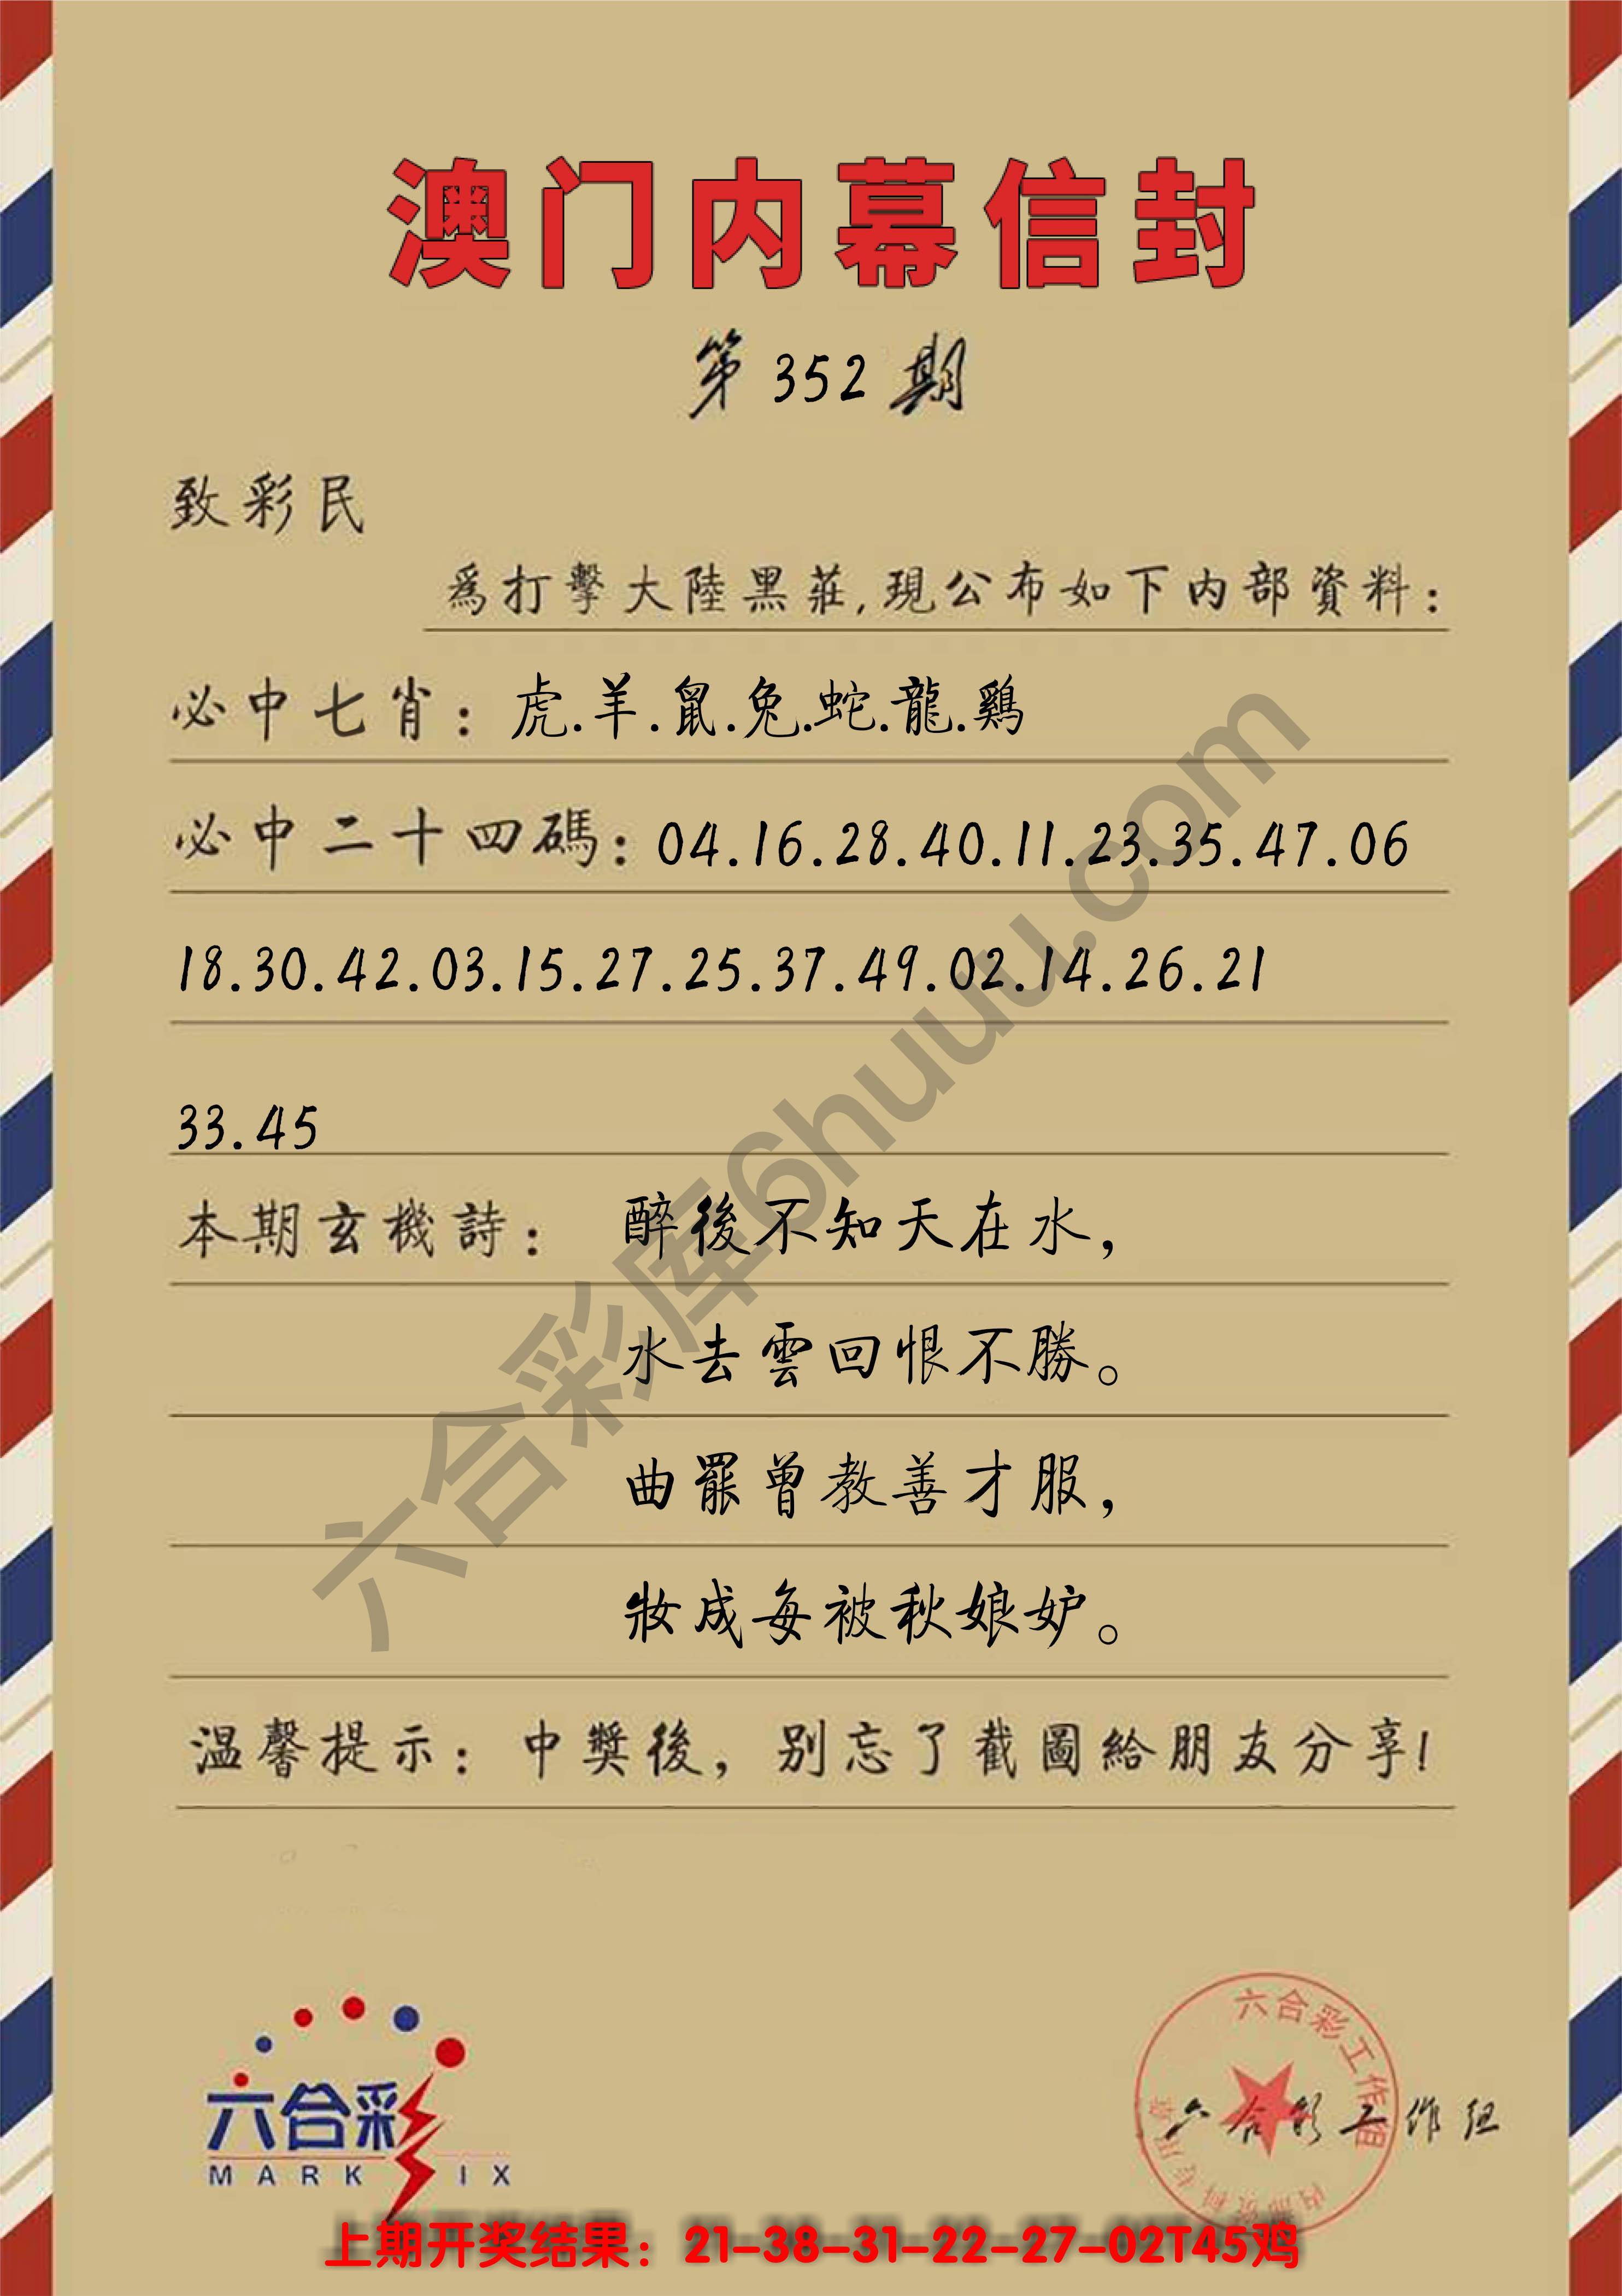 澳门内幕信封
第 352 期
致彩民
爲打擊大陸黑莊,現公布如下内部資料:
必中七肖: 虎.羊.鼠.兔.蛇.龍.鷄
必中二十四碼: 04.16.28.40.11.23.35.47.06
18.30.42.03.15.27.25.37.49.02.14.26.21
33.45
本期玄機詩: 醉後不知天在水,
水去雲回恨不勝。
曲罷曾教善才服,
妝成每被秋娘妒。
温馨提示: 中獎後,别忘了截圖給朋友分享!
六合彩库6huuu.com
六合彩
MARK IX
六合彩工作组
六合彩工作组
上期开奖结果: 21-38-31-22-27-02T45鸡